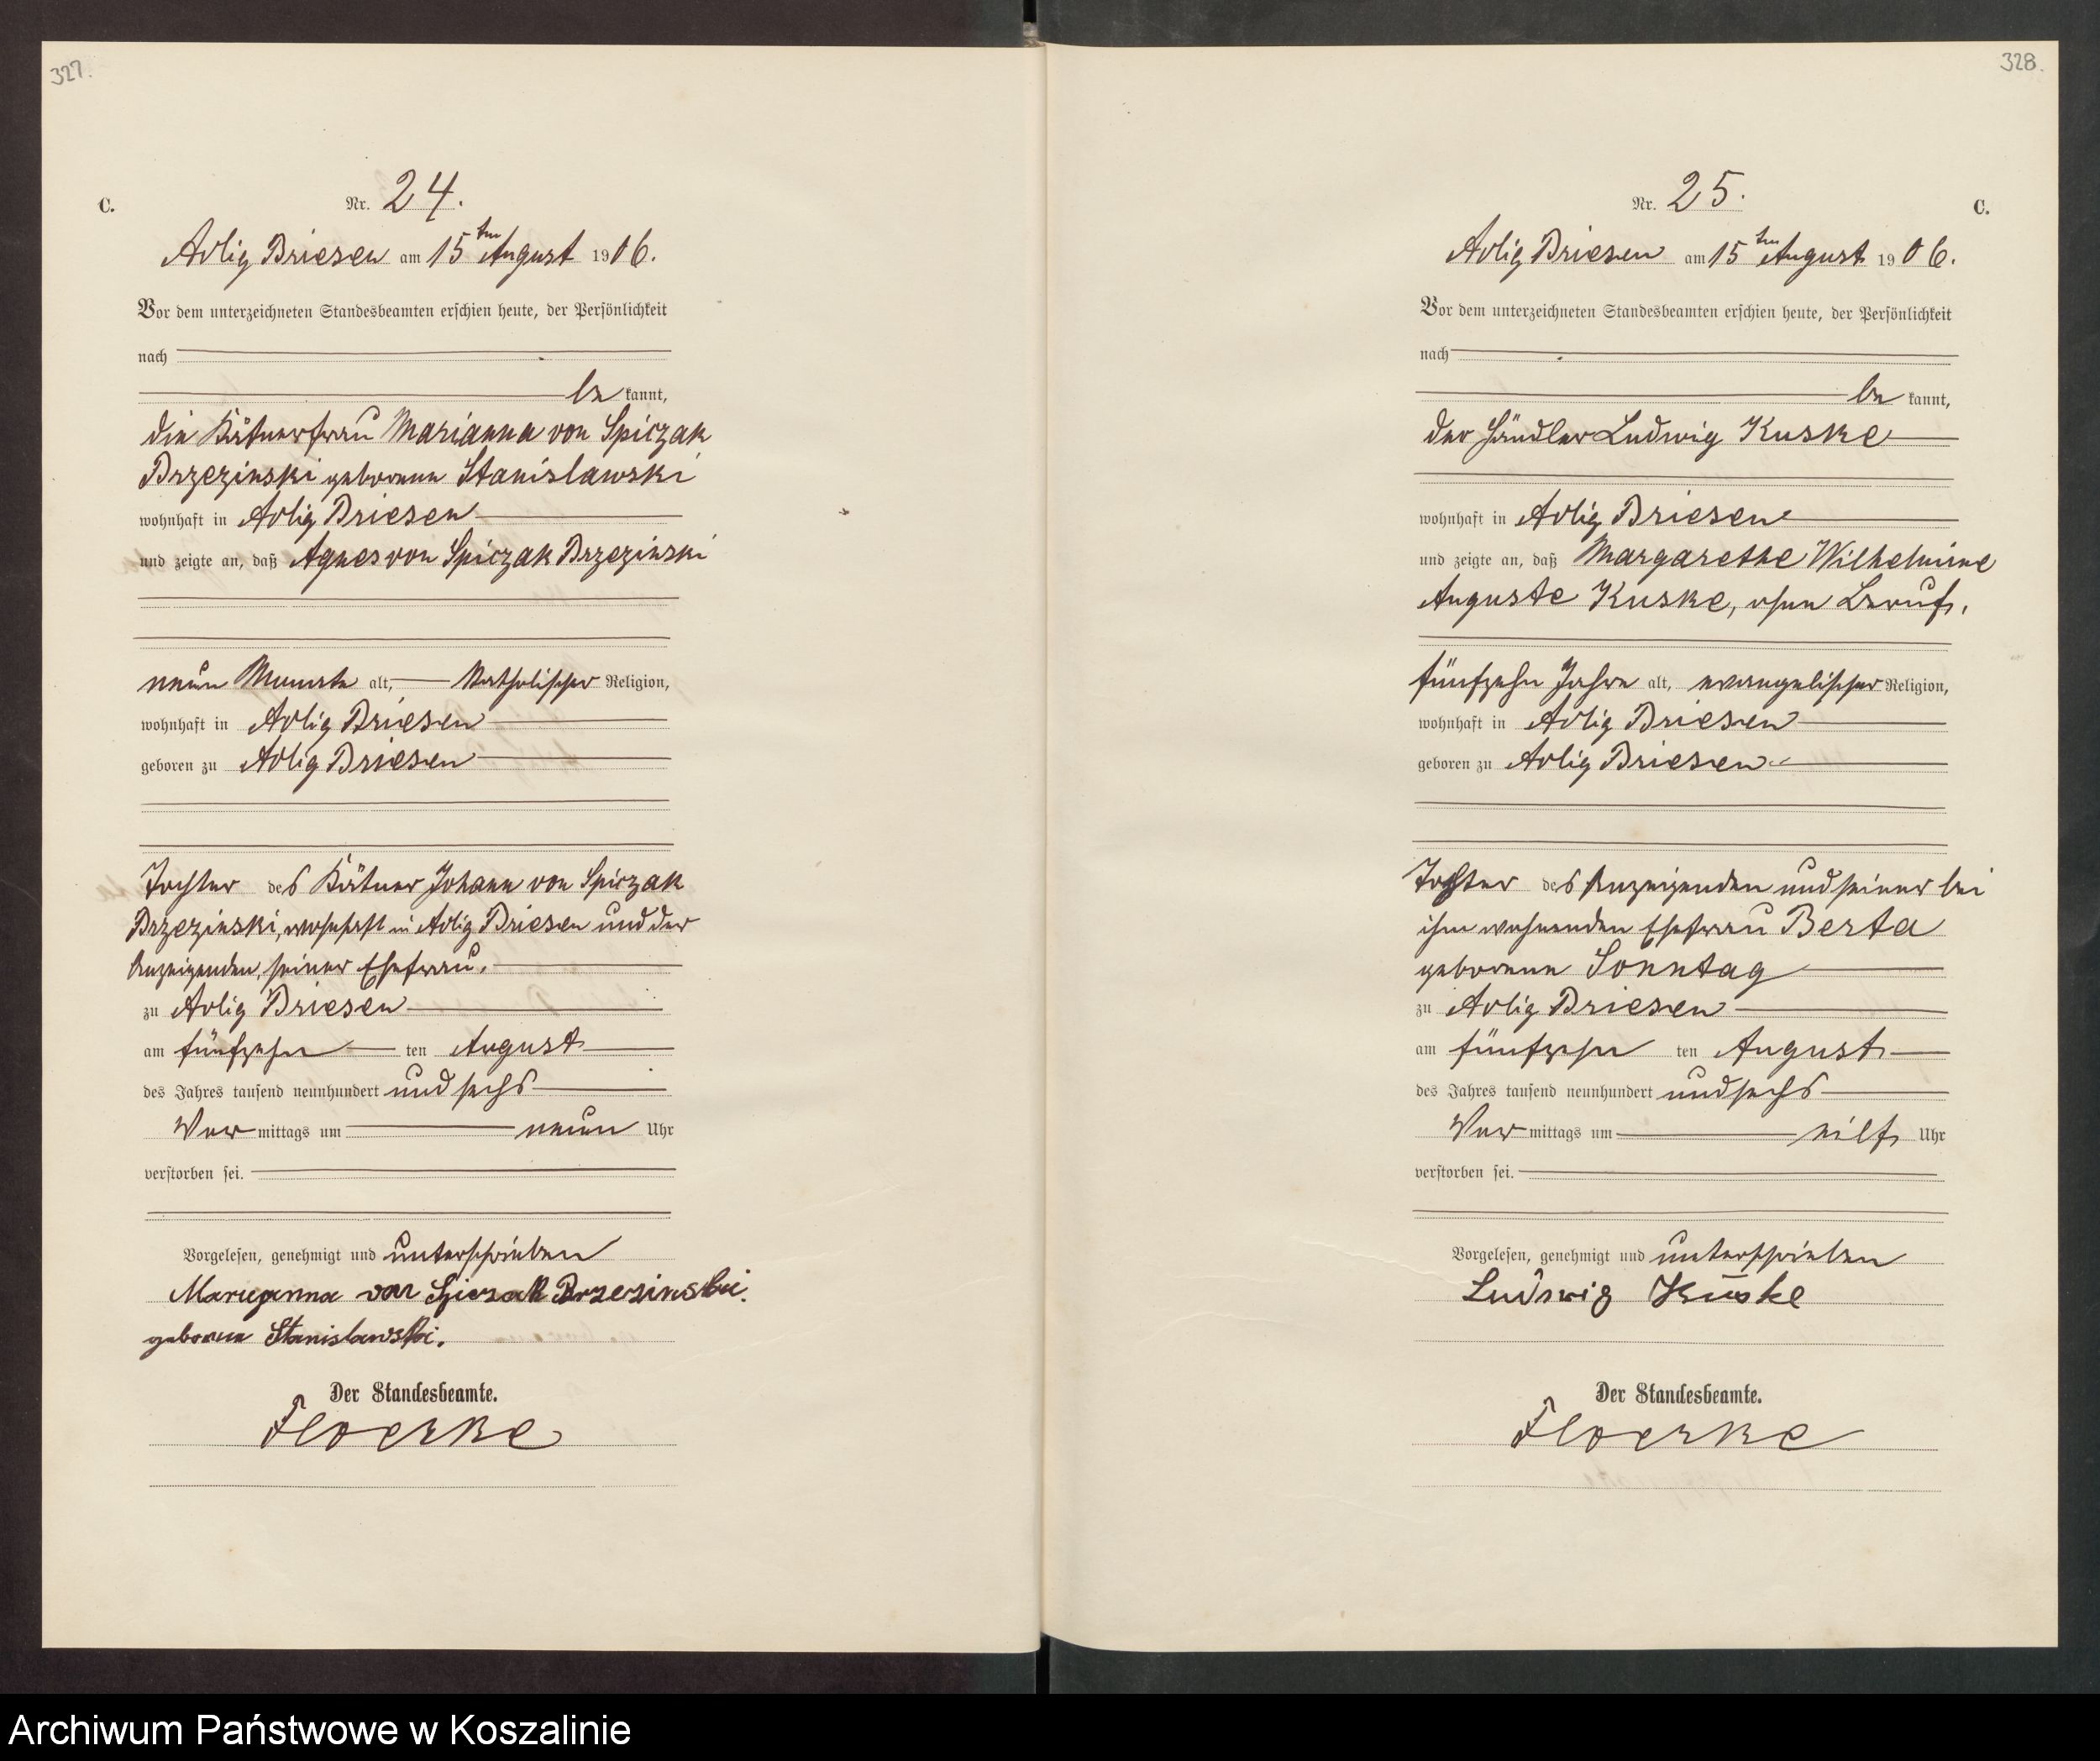 327.
C.
Nr. 24.
Adlig Briesen am 15ten August 1906.
Vor dem unterzeichneten Standesbeamten erschien heute, der Persönlichkeit
nach
be kannt,
die Kätnerfrau Marianna von Spiczak
Brzezinski geborene Stanislawski
wohnhaft in Adlig Briesen
und zeigte an, daß Agnes von Spiczak Brzezinski
neun Monate alt, katholischer Religion,
wohnhaft in Adlig Briesen
geboren zu Adlig Briesen
Tochter des Kätner Johann von Spiczak
Brzezinski, wohnhaft in Adlig Briesen und der
Anzeigenden, seiner Ehefrau.
zu Adlig Briesen
am fünfzehn ten August
des Jahres tausend neunhundert und sechs
Vor mittags um neun Uhr
verstorben sei.
Vorgelesen, genehmigt und unterschrieben
Marieanna von Spiczak Brzezinski.
geborene Stanislawski.
Der Standesbeamte.
Floerke
328.
C.
Nr. 25.
Adlig Briesen am 15ten August 1906.
Vor dem unterzeichneten Standesbeamten erschien heute, der Persönlichkeit
nach
be kannt,
der Händler Ludwig Kuske
wohnhaft in Adlig Briesen
und zeigte an, daß Margarethe Wilhelmine
Auguste Kuske, ohne Beruf,
fünfzehn Jahre alt, evangelischer Religion,
wohnhaft in Adlig Briesen
geboren zu Adlig Briesen
Tochter des Anzeigenden und seiner bei
ihm wohnenden Ehefrau Berta
geborene Sonntag
zu Adlig Briesen
am fünfzehn ten August
des Jahres tausend neunhundert und sechs
Vor mittags um eilf Uhr
verstorben sei.
Vorgelesen, genehmigt und unterschrieben
Ludwig Kuske
Der Standesbeamte.
Floerke
Archiwum Państwowe w Koszalinie